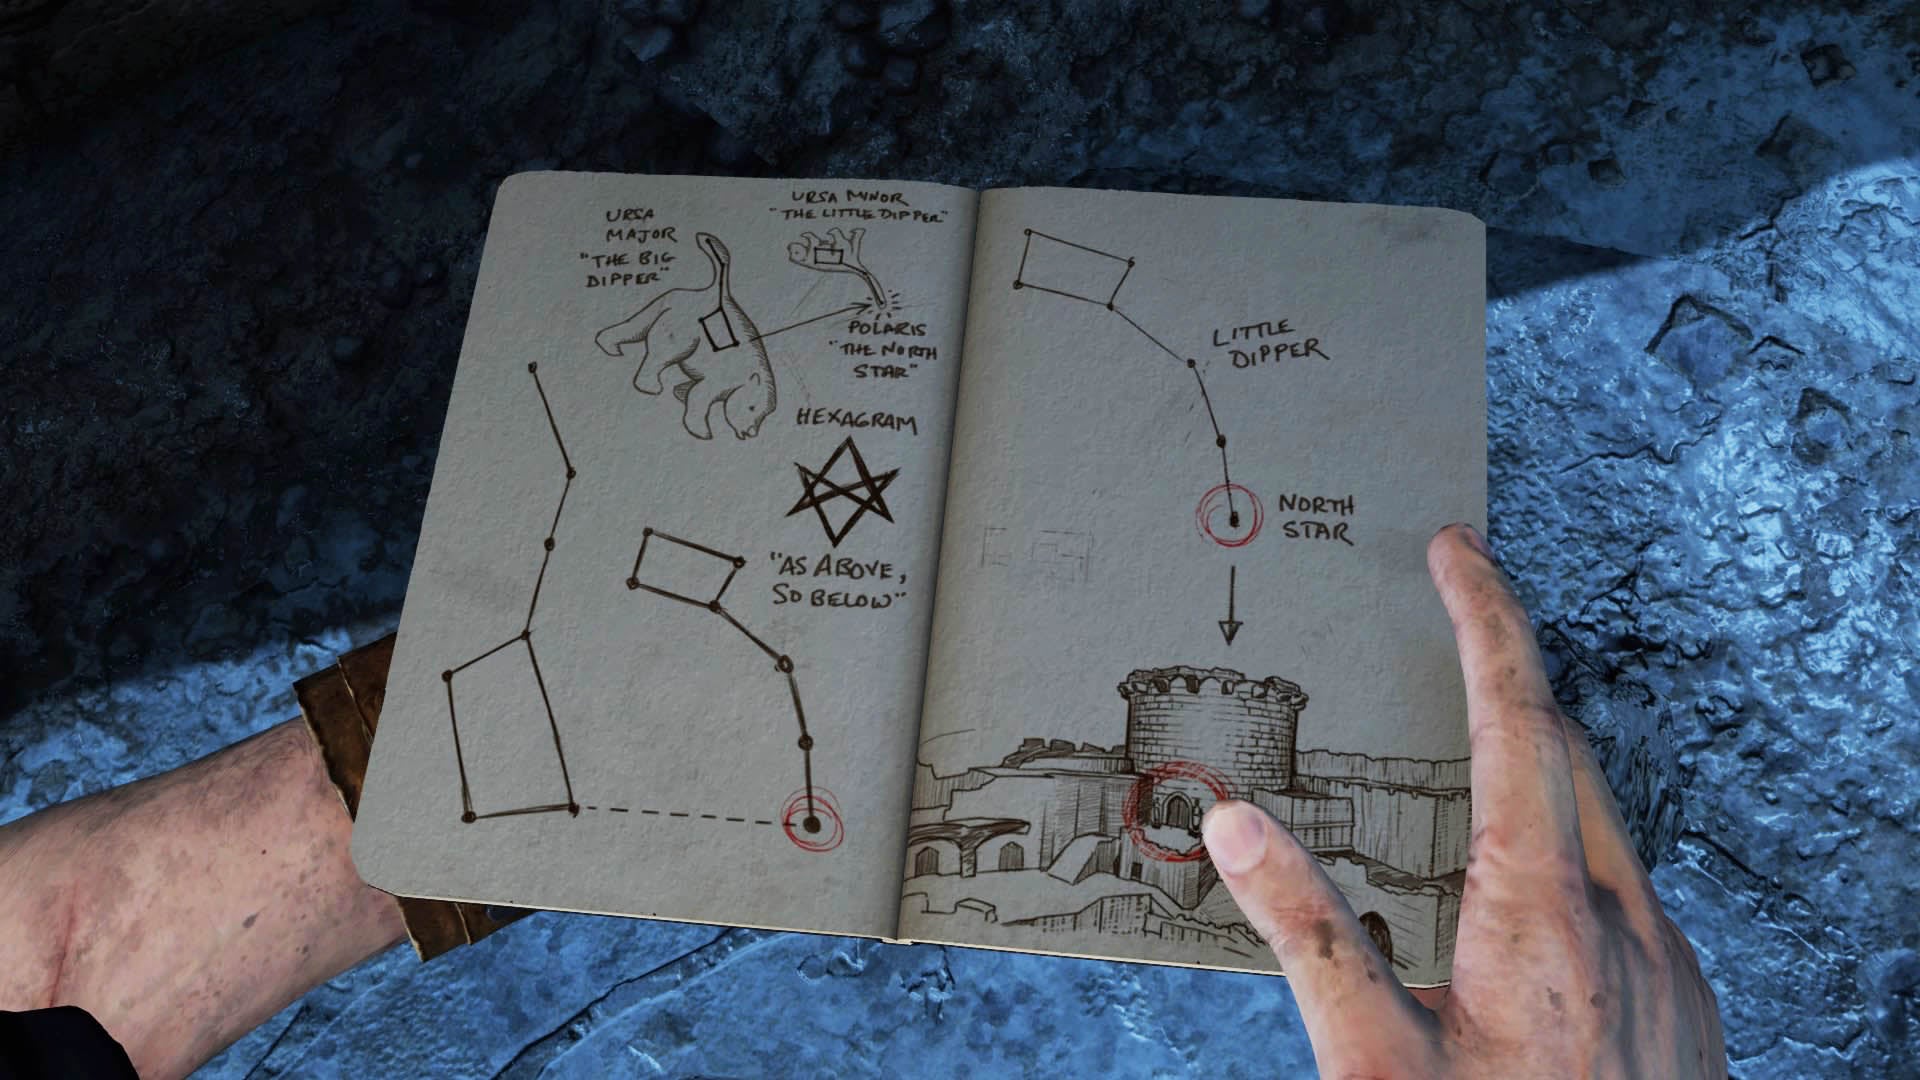 URSA
MAJOR
"THE BIG
DIPPER"
URSA MINOR
"THE LITTLE DIPPER"
POLARIS
"THE NORTH
STAR"
HEXAGRAM
"AS ABOVE,
SO BELOW"
LITTLE
DIPPER
NORTH
STAR